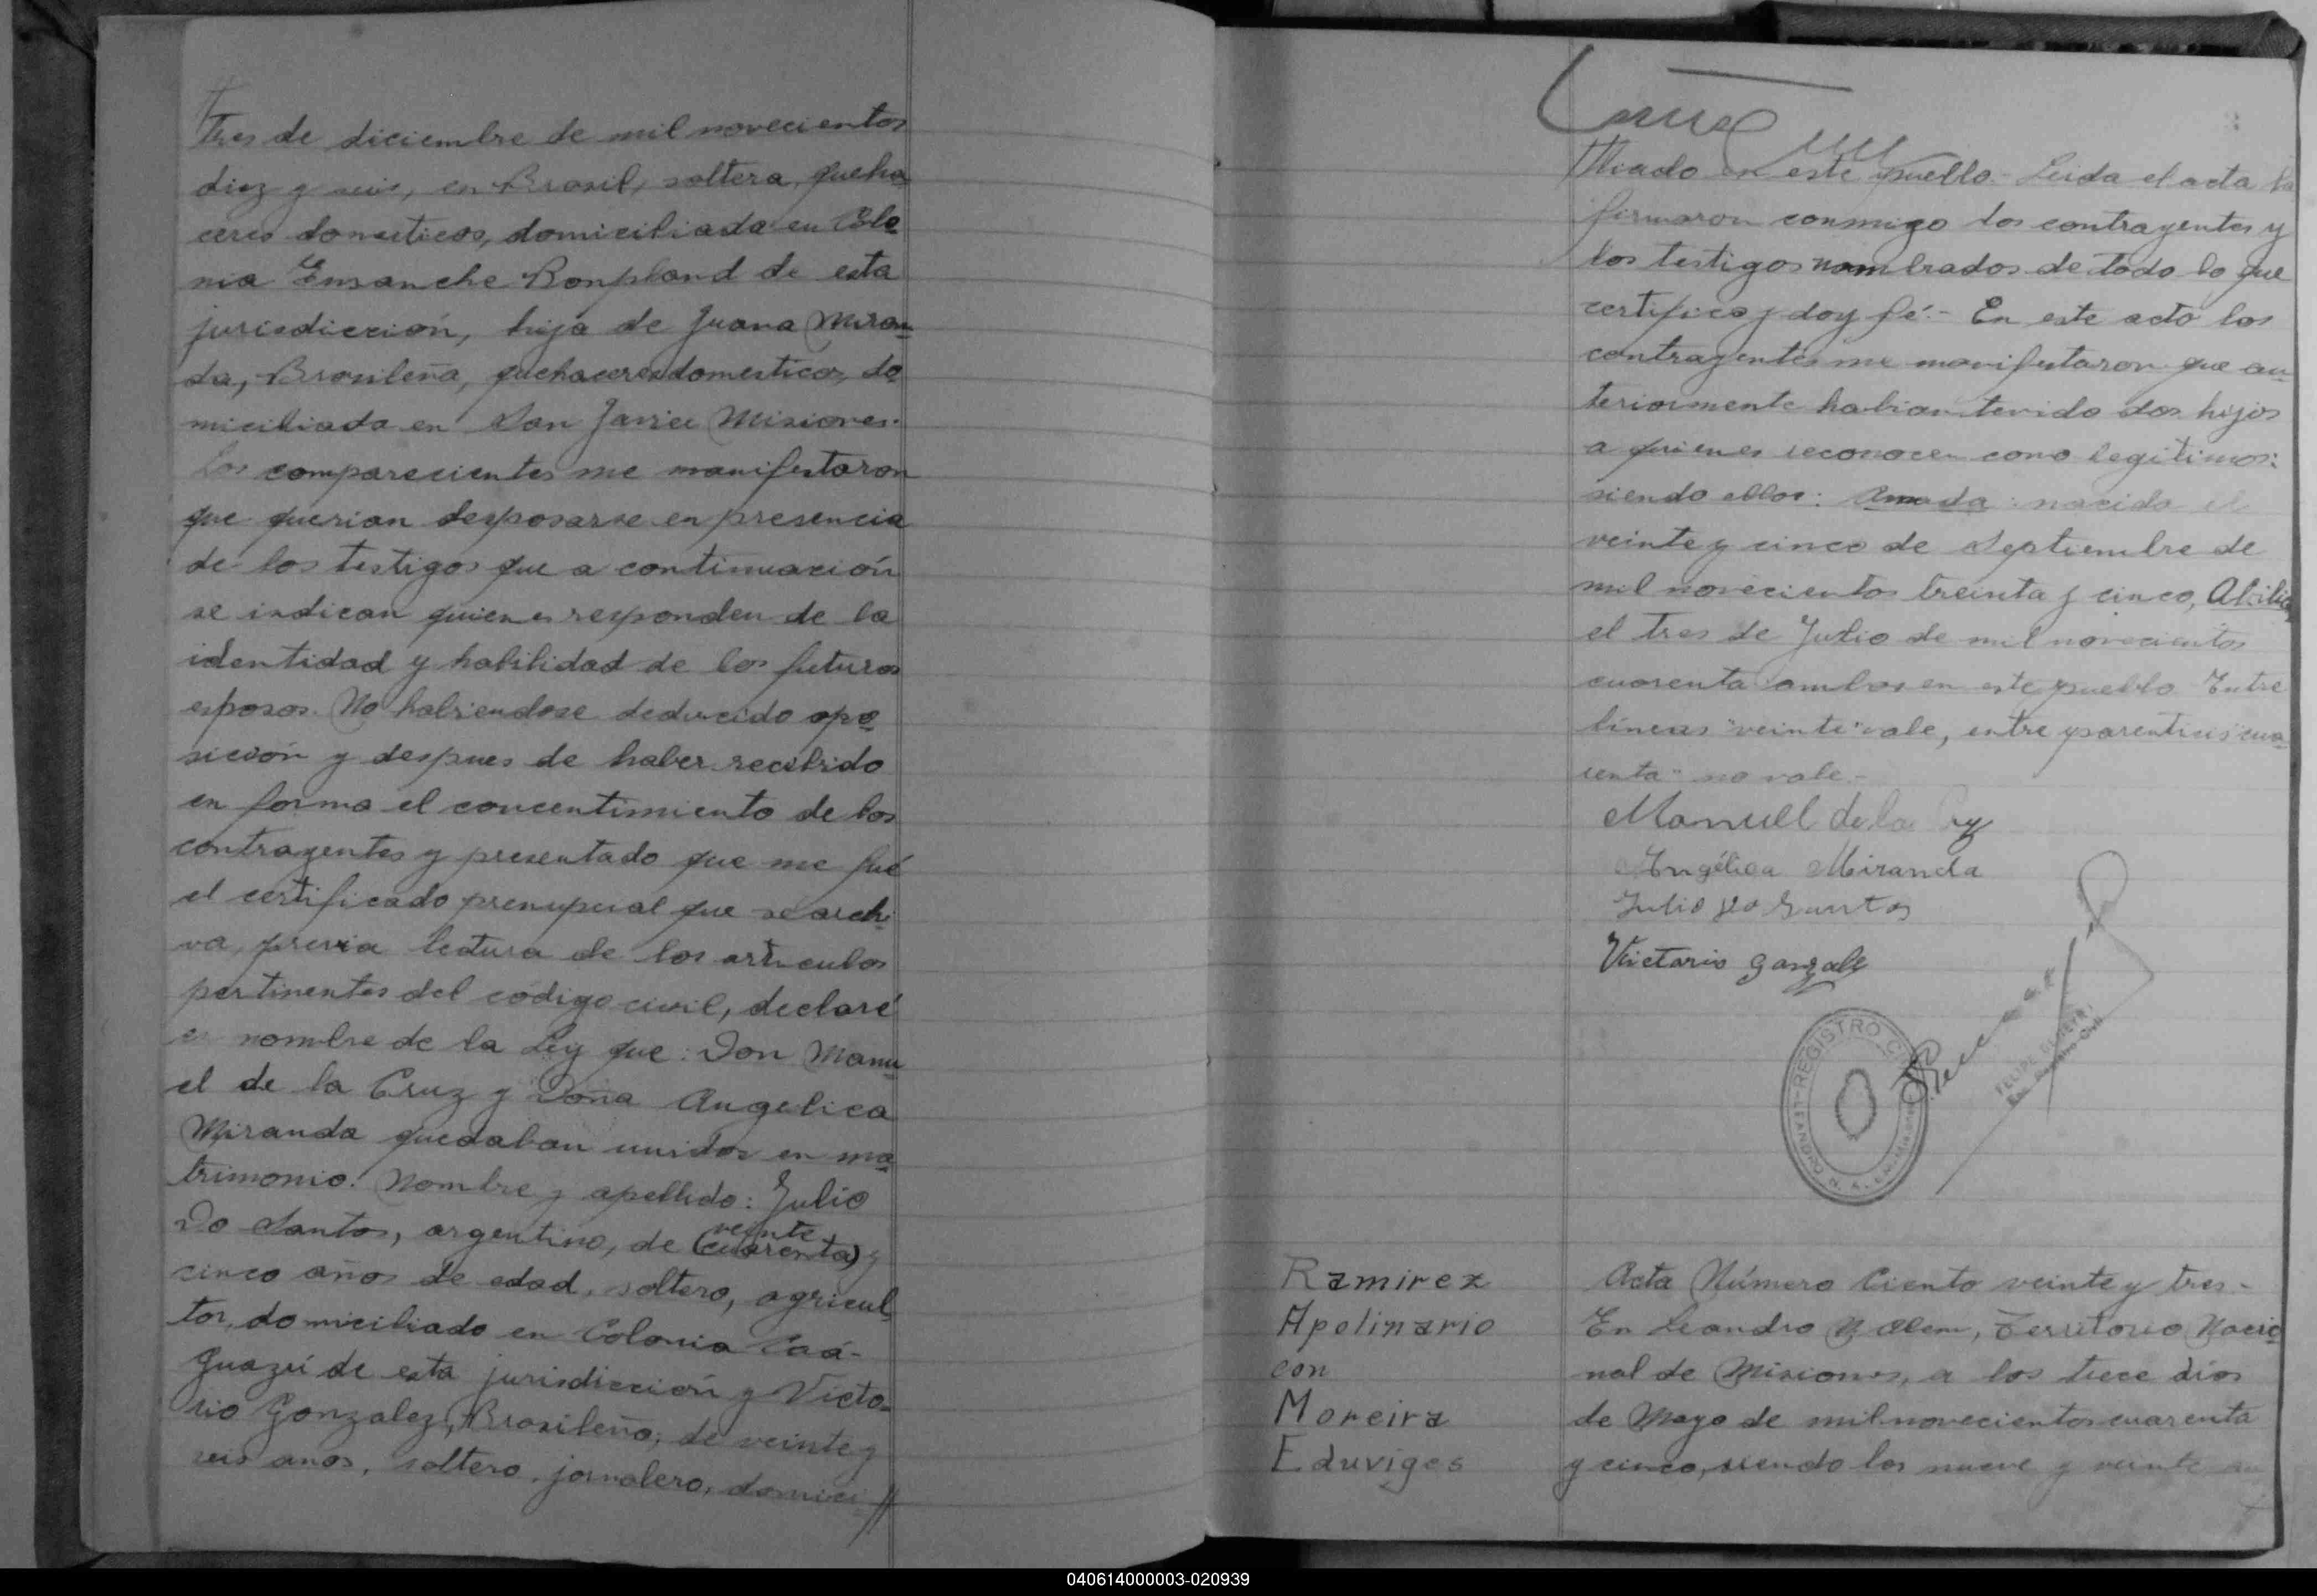 Tres de diciembre de mil novecientos
diez y seis, en Brasil, soltera, queha
ceres domesticos, domiciliada en Colo
nia Ensanche Bonpland de esta
jurisdicción, hija de Juana Miran
da, Brasileña, quehaceres domesticos, do
miciliada en San Javier Misiones.
Los comparecientes me manifestaron
que querian desposarse en presencia
de los testigos que a continuación
se indican quienes responden de la
identidad y habilidad de los futuros
esposos. No habiendose deducido opo
sición y despues de haber recibido
en forma el concentimiento de los
contrayentes y presentado que me fué
el certificado prenupcial que se archi
va, previa lectura de los articulos
pertinentes del código civil, declaré
en nombre de la Ley que: Don Manu
el de la Cruz y Doña Angelica
Miranda quedaban unidos en ma
trimonio. Nombre y apellido: Julio
veinte
Do Santos, argentino, de (cuarenta) y
cinco años de edad, soltero, agricul
tor, domiciliado en Colonia Caá-
Guazú de esta jurisdicción y Victo-
rio Gonzalez, Brasileño, de veinte y
seis anos, soltero, jornalero, domici//
lliado en este pueblo.- Leida el acta la
firmaron conmigo los contrayentes y
los testigos nombrados de todo lo que
certifico y doy fé.- En este acto los
contrayentes me manifestaron que an
teriormente habian tenido dos hijos
a quienes reconocen como legitimos:
siendo ellos: Amada: nacido el
veinte y cinco de Septiembre de
mil novecientos treinta y cinco,
el tres de Julio de mil novecientos
cuarenta ambos en este pueblo. Entre
líneas "veinte" vale, entre parentisis "cua
renta" no vale.-
Manuell de la
Angélica Miranda
Julio do Santos
Victorio Gonzalez
REGISTRO CIVIL
LEANDRO N. ALEM
Ramirez
Apolinario
con
Moreira
Eduviges
Acta Número Ciento veinte y tres.-
En Leandro N Alem, Territorio Nacio
nal de Misiones, a los trece dias
de Mayo de mil novecientos cuarenta
y cinco, siendo las nueve y veinte
040614000003-020939